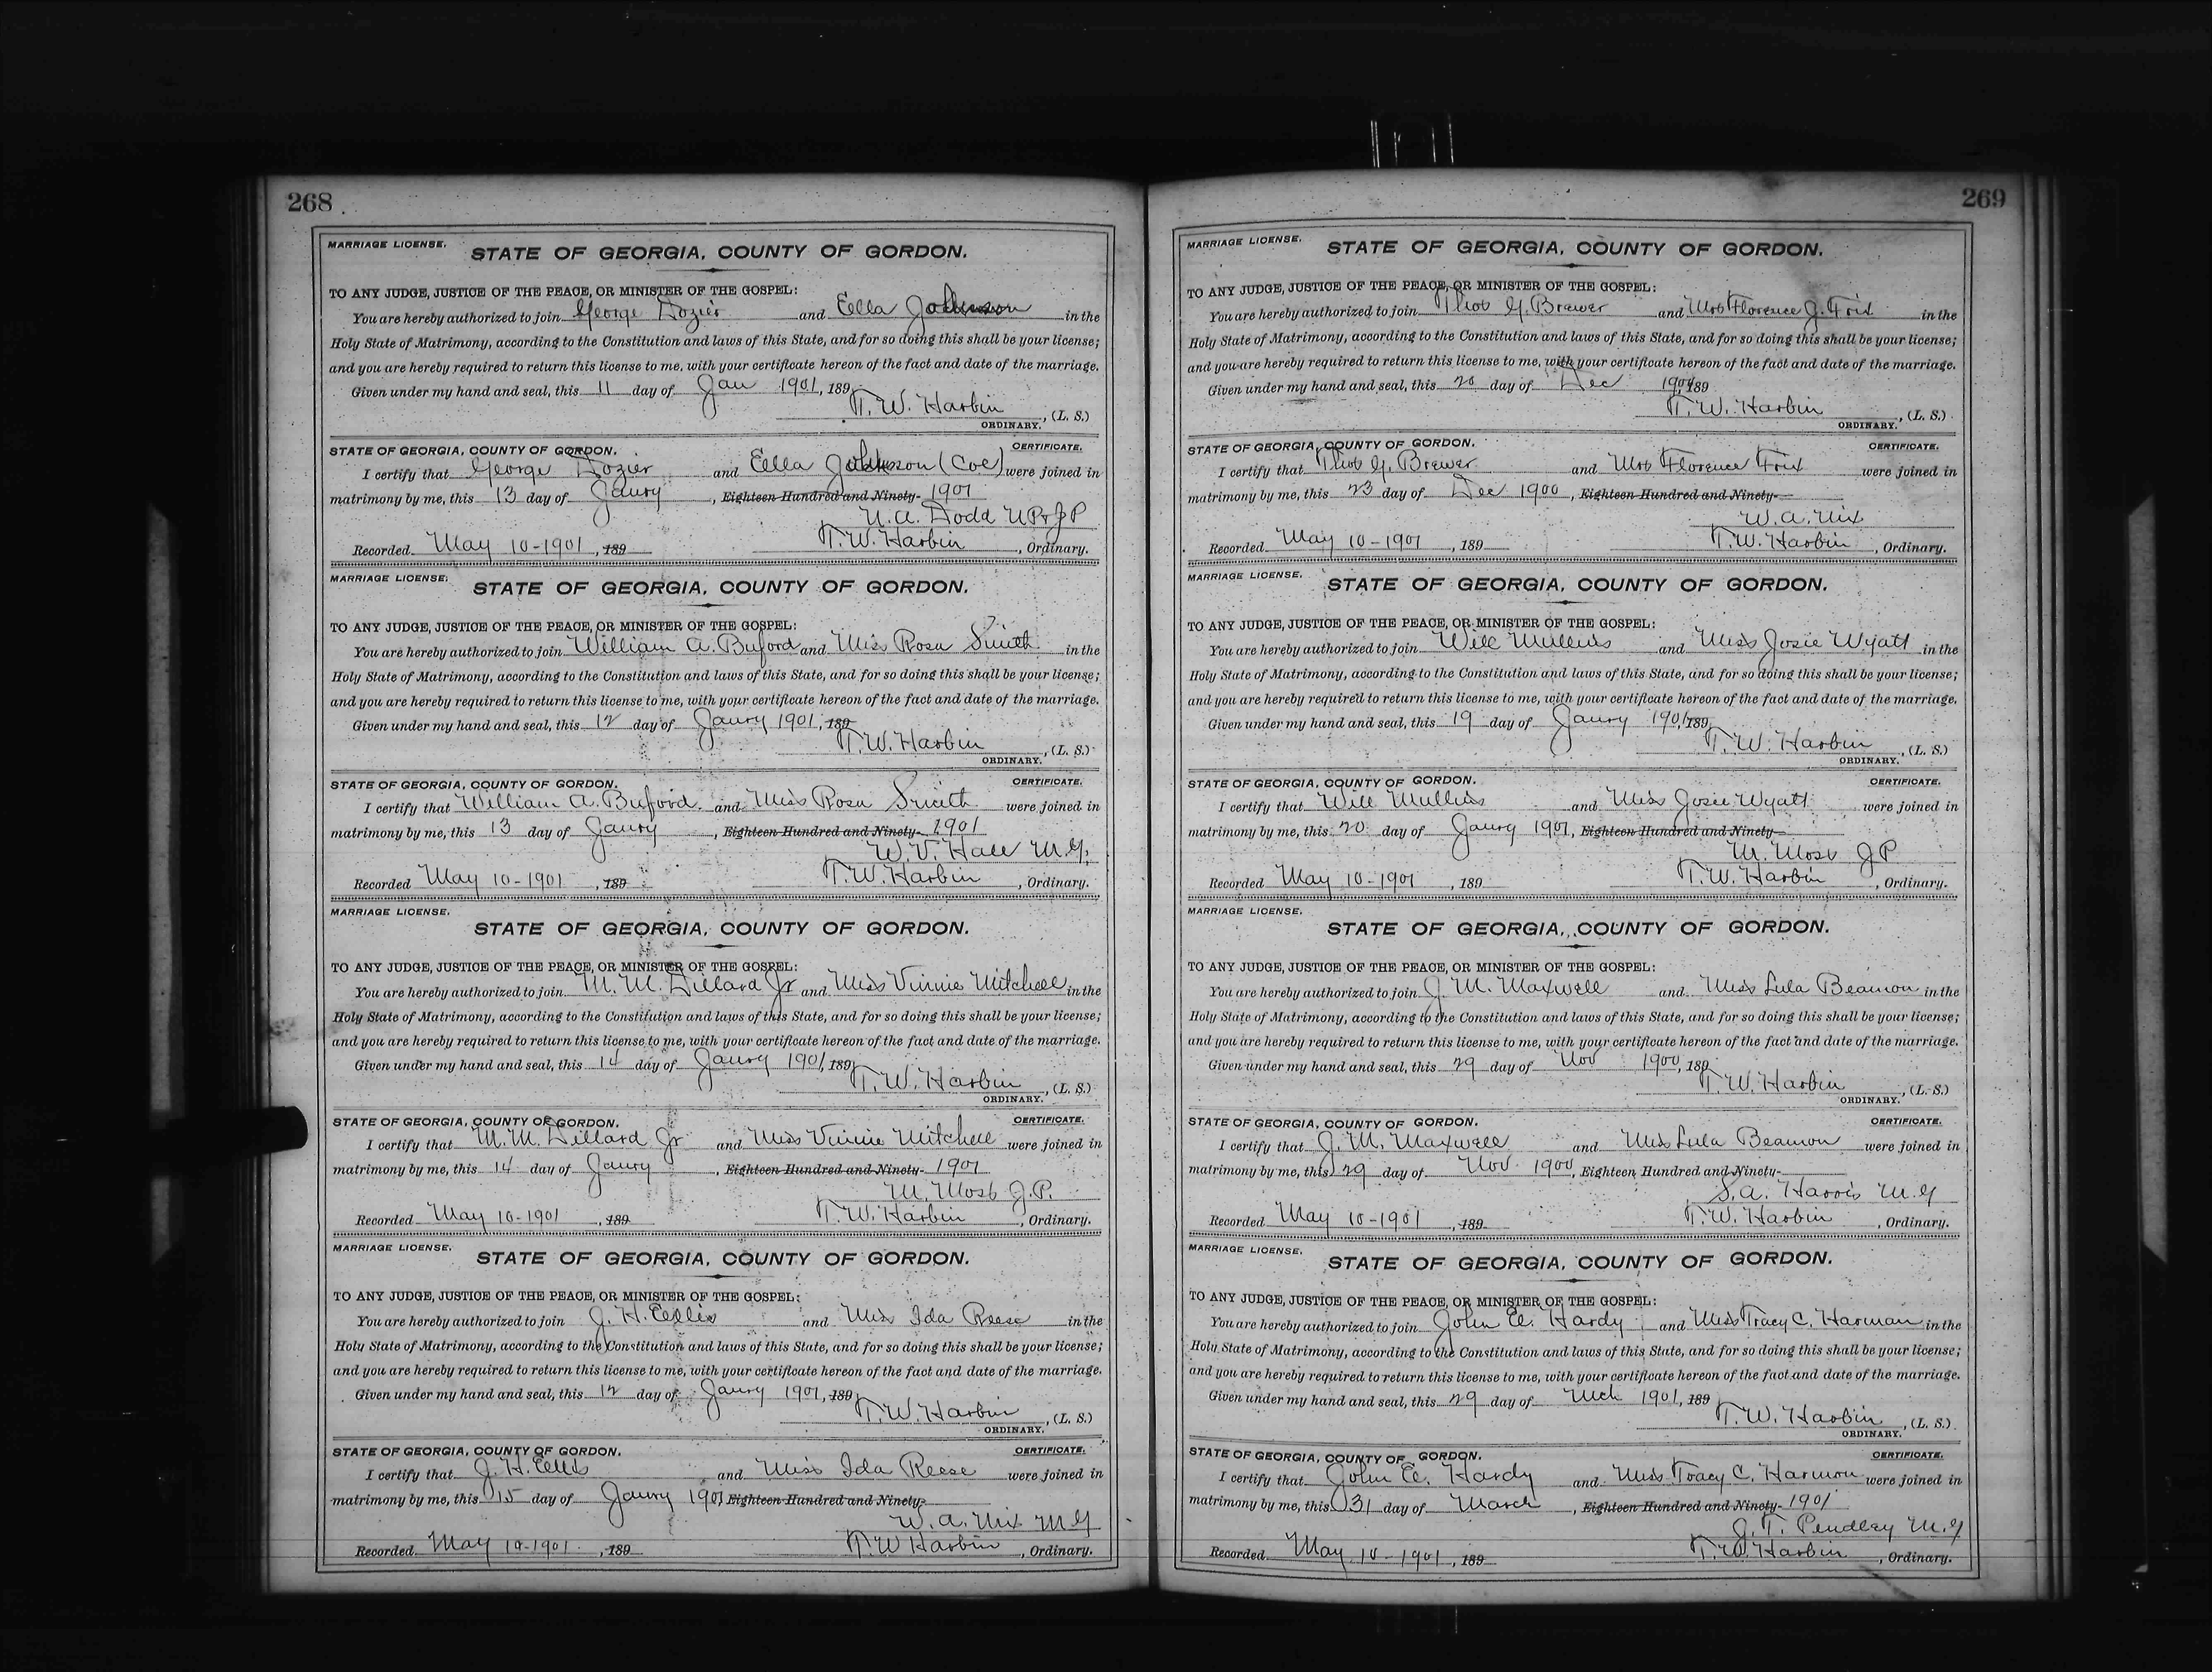 268
MARRIAGE LICENSE. STATE OF GEORGIA, COUNTY OF GORDON.
TO ANY JUDGE, JUSTICE OF THE PEACE, OR MINISTER OF THE GOSPEL:
You are hereby authorized to join George Dozier and Ella Johnson in the
Holy State of Matrimony, according to the Constitution and laws of this State, and for so doing this shall be your license;
and you are hereby required to return this license to me, with your certificate hereon of the fact and date of the marriage.
Given under my hand and seal, this 11 day of Jan 1901, 189
T. W. Harbin, (L. S.)
ORDINARY.
STATE OF GEORGIA, COUNTY OF GORDON. CERTIFICATE.
I certify that George Dozier and Ella Johnson (Col) were joined in
matrimony by me, this 13 day of Jaury, Eighteen Hundred and Ninety- 1901
N. A. Dodd N P & J P
Recorded May 10-1901, 189 T. W. Harbin, Ordinary.
MARRIAGE LICENSE. STATE OF GEORGIA, COUNTY OF GORDON.
TO ANY JUDGE, JUSTICE OF THE PEACE, OR MINISTER OF THE GOSPEL:
You are hereby authorized to join William A. Buford and Miss Rosa Smith in the
Holy State of Matrimony, according to the Constitution and laws of this State, and for so doing this shall be your license;
and you are hereby required to return this license to me, with your certificate hereon of the fact and date of the marriage.
Given under my hand and seal, this 12 day of Jaury 1901, 189
T. W. Harbin, (L. S.)
ORDINARY.
STATE OF GEORGIA, COUNTY OF GORDON. CERTIFICATE.
I certify that William A. Buford and Miss Rosa Smith were joined in
matrimony by me, this 13 day of Jaury, Eighteen Hundred and Ninety- 1901
W. V. Hall M. G.
Recorded May 10-1901, 189 T. W. Harbin, Ordinary.
MARRIAGE LICENSE.
STATE OF GEORGIA, COUNTY OF GORDON.
TO ANY JUDGE, JUSTICE OF THE PEACE, OR MINISTER OF THE GOSPEL:
You are hereby authorized to join M. M. Dillard Jr and Miss Vinnie Mitchell in the
Holy State of Matrimony, according to the Constitution and laws of this State, and for so doing this shall be your license;
and you are hereby required to return this license to me, with your certificate hereon of the fact and date of the marriage.
Given under my hand and seal, this 14 day of Jaury 1901, 189
T. W. Harbin, (L. S.)
ORDINARY.
STATE OF GEORGIA, COUNTY OF GORDON. CERTIFICATE.
I certify that M. M. Dillard Jr and Miss Vinnie Mitchell were joined in
matrimony by me, this 14 day of Jaury, Eighteen Hundred and Ninety- 1901
M. Moss J. P.
Recorded May 10-1901, 189 T. W. Harbin, Ordinary.
MARRIAGE LICENSE. STATE OF GEORGIA, COUNTY OF GORDON.
TO ANY JUDGE, JUSTICE OF THE PEACE, OR MINISTER OF THE GOSPEL:
You are hereby authorized to join J. H. Ellis and Miss Ida Reese in the
Holy State of Matrimony, according to the Constitution and laws of this State, and for so doing this shall be your license;
and you are hereby required to return this license to me, with your certificate hereon of the fact and date of the marriage.
Given under my hand and seal, this 12 day of Jaury 1901, 189
T. W. Harbin, (L. S.)
ORDINARY.
STATE OF GEORGIA, COUNTY OF GORDON. CERTIFICATE.
I certify that J. H. Ellis and Miss Ida Reese were joined in
matrimony by me, this 15 day of Jaury 1901 Eighteen Hundred and Ninety-
W. A. Nix M G
Recorded May 10-1901, 189 T. W Harbin, Ordinary.
269
MARRIAGE LICENSE. STATE OF GEORGIA, COUNTY OF GORDON.
TO ANY JUDGE, JUSTICE OF THE PEACE, OR MINISTER OF THE GOSPEL:
You are hereby authorized to join Thos G. Brewer and Mrs Florence J. Frix in the
Holy State of Matrimony, according to the Constitution and laws of this State, and for so doing this shall be your license;
and you are hereby required to return this license to me, with your certificate hereon of the fact and date of the marriage.
Given under my hand and seal, this 20 day of Dec 189
T. W. Harbin, (L. S.)
ORDINARY.
STATE OF GEORGIA, COUNTY OF GORDON. CERTIFICATE.
I certify that Thos G. Brewer and Mrs Florence Frix were joined in
matrimony by me, this 23 day of Dec 1900, Eighteen Hundred and Ninety-
W. A. Nix
Recorded May 10-1901, 189 T. W. Harbin, Ordinary.
MARRIAGE LICENSE. STATE OF GEORGIA, COUNTY OF GORDON.
TO ANY JUDGE, JUSTICE OF THE PEACE, OR MINISTER OF THE GOSPEL:
You are hereby authorized to join Will Mullins and Miss Josie Wyatt in the
Holy State of Matrimony, according to the Constitution and laws of this State, and for so doing this shall be your license;
and you are hereby required to return this license to me, with your certificate hereon of the fact and date of the marriage.
Given under my hand and seal, this 19 day of Jaury 1901, 189
T. W. Harbin, (L. S.)
ORDINARY.
STATE OF GEORGIA, COUNTY OF GORDON. CERTIFICATE.
I certify that Will Mullins and Miss Josie Wyatt were joined in
matrimony by me, this 20 day of Jaury 1901, Eighteen Hundred and Ninety-
M. Moss J P
Recorded May 10-1901, 189 T. W. Harbin, Ordinary.
MARRIAGE LICENSE.
STATE OF GEORGIA, COUNTY OF GORDON.
TO ANY JUDGE, JUSTICE OF THE PEACE, OR MINISTER OF THE GOSPEL:
You are hereby authorized to join J. M. Maxwell and Miss Lula Beamon in the
Holy State of Matrimony, according to the Constitution and laws of this State, and for so doing this shall be your license;
and you are hereby required to return this license to me, with your certificate hereon of the fact and date of the marriage.
Given under my hand and seal, this 29 day of Nov 1900, 189
T. W. Harbin, (L. S.)
ORDINARY.
STATE OF GEORGIA, COUNTY OF GORDON. CERTIFICATE.
I certify that J. M. Maxwell and Miss Lula Beamon were joined in
matrimony by me, this 29 day of Nov. 1900, Eighteen Hundred and Ninety-
S. A. Harris M. G
Recorded May 10-1901, 189 T. W. Harbin, Ordinary.
MARRIAGE LICENSE. STATE OF GEORGIA, COUNTY OF GORDON.
TO ANY JUDGE, JUSTICE OF THE PEACE, OR MINISTER OF THE GOSPEL:
You are hereby authorized to join John E. Hardy and Miss Tracy C. Harman in the
Holy State of Matrimony, according to the Constitution and laws of this State, and for so doing this shall be your license;
and you are hereby required to return this license to me, with your certificate hereon of the fact and date of the marriage.
Given under my hand and seal, this 29 day of Mch 1901, 189
T. W. Harbin, (L. S.)
ORDINARY.
STATE OF GEORGIA, COUNTY OF GORDON. CERTIFICATE.
I certify that John E. Hardy and Miss Tracy C. Harmon were joined in
matrimony by me, this 31 day of March, Eighteen Hundred and Ninety- 1901
J. T. Pendley M. G
Recorded May 10-1901, 189 T. W. Harbin, Ordinary.